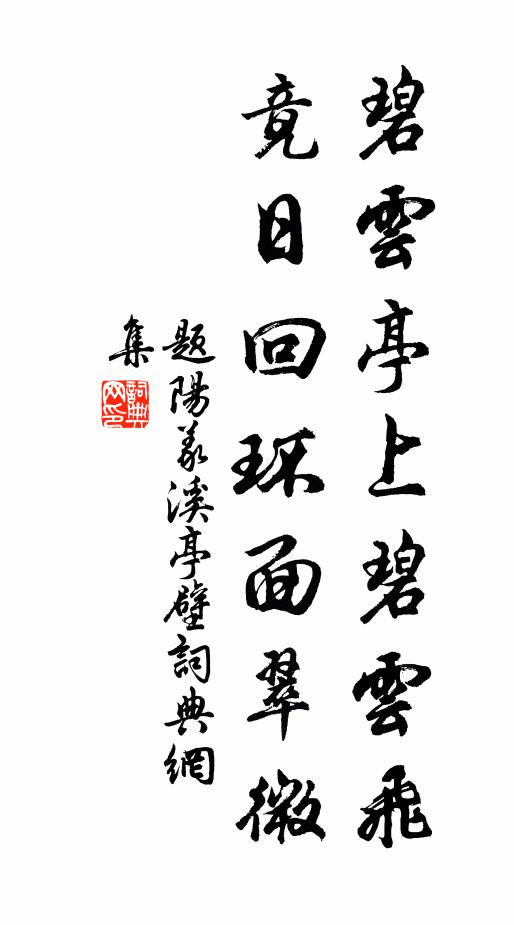 碧雲亭上碧雲飛
竟日回环面翠微
題陽羡溪亭壁詞典網
集
詞典
网印